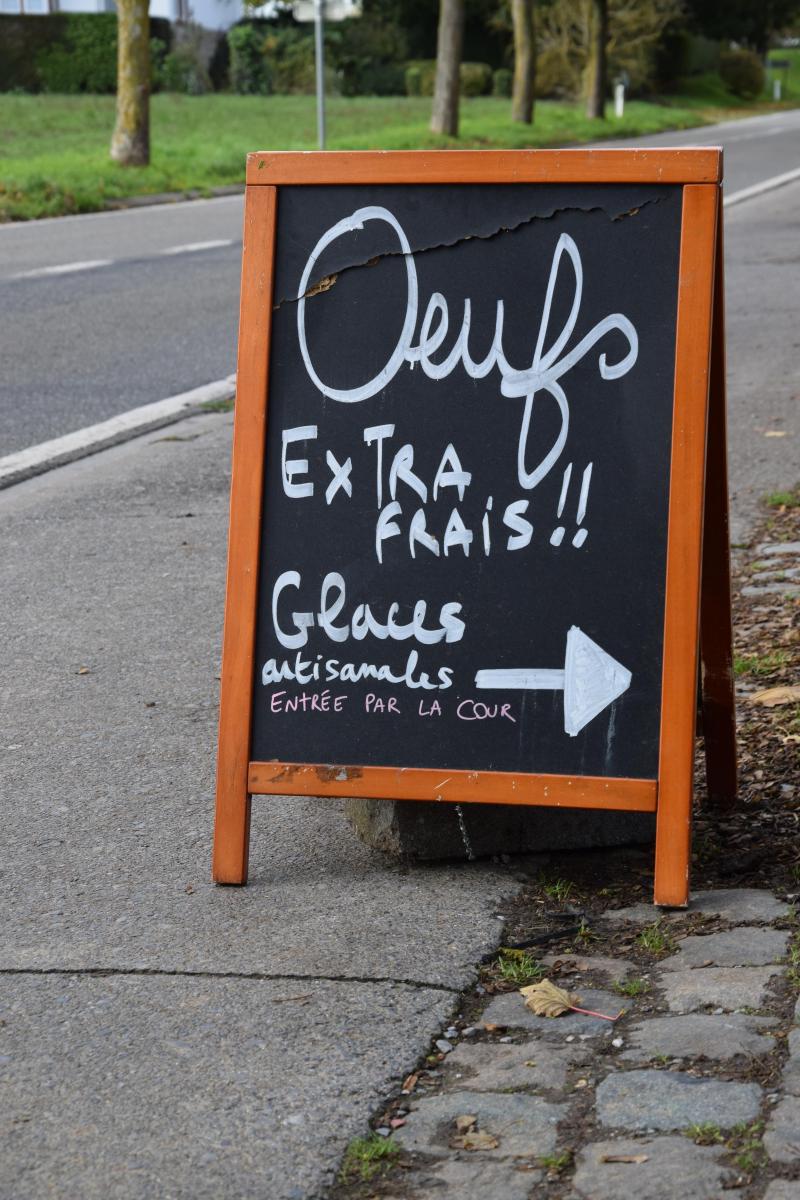 Oeufs
ExTRA
FRAiS!!
Glaces
artisanales
ENTRÉE PAR LA COUR